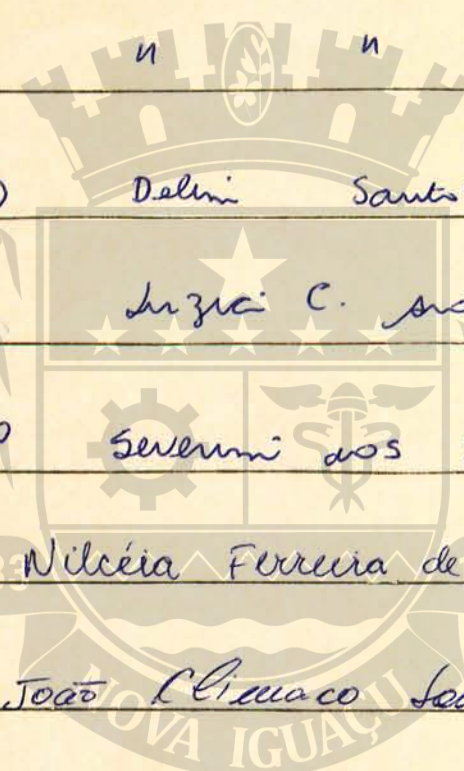 " "
Delmi Santo
Luzia C.
Severini dos
Nilcéia Ferreira de
João Climaco
NOVA IGUAÇU